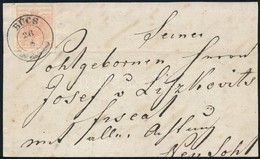 BÚCS
26
8
Seiner
Wohlgebornen Herrn
Josef v Litzkovits
fiscal
mit aller Achtung
Neu Sohl